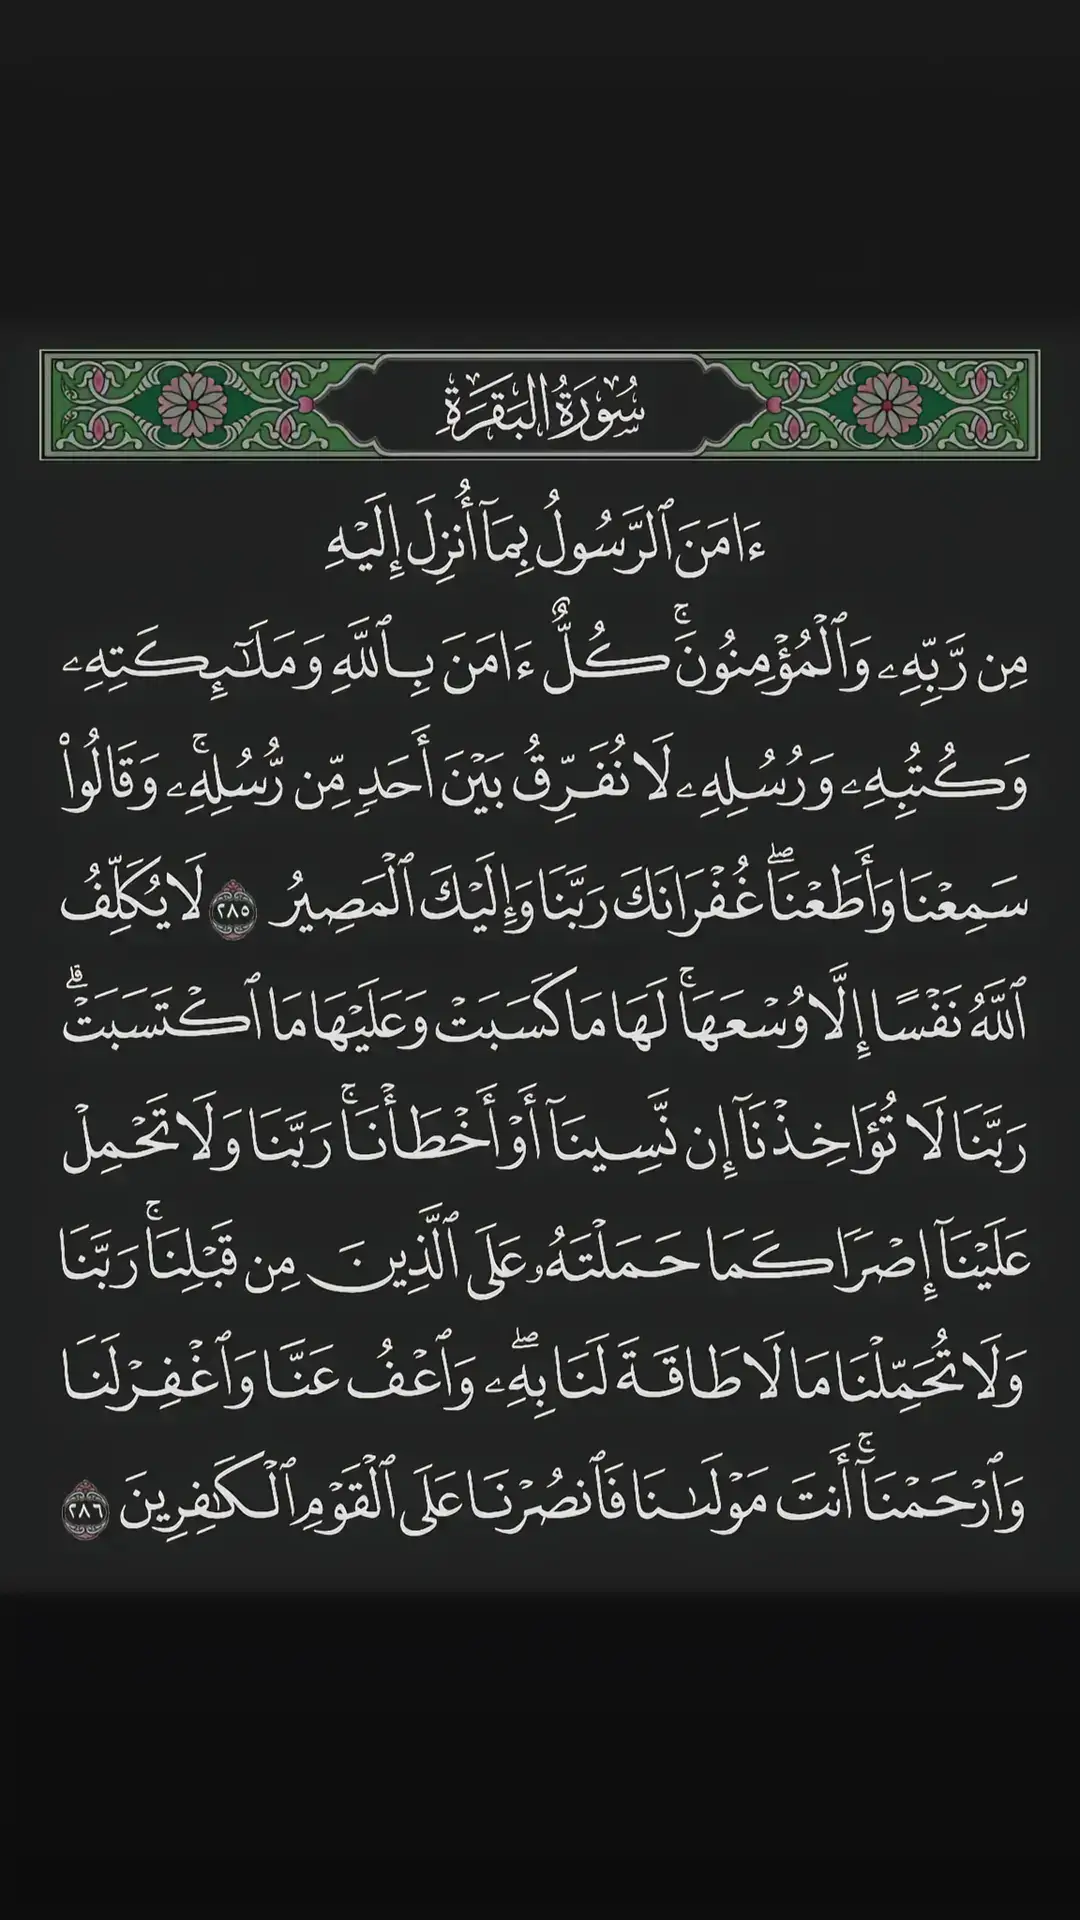 سُورَةُ البَقَرَةِ
ءَامَنَ ٱلرَّسُولُ بِمَآ أُنزِلَ إِلَيۡهِ
مِن رَّبِّهِۦ وَٱلۡمُؤۡمِنُونَۚ كُلٌّ ءَامَنَ بِٱللَّهِ وَمَلَـٰٓئِكَتِهِۦ
وَكُتُبِهِۦ وَرُسُلِهِۦ لَا نُفَرِّقُ بَيۡنَ أَحَدٖ مِّن رُّسُلِهِۦۚ وَقَالُواْ
سَمِعۡنَا وَأَطَعۡنَاۖ غُفۡرَانَكَ رَبَّنَا وَإِلَيۡكَ ٱلۡمَصِيرُ ٢٨٥ لَا يُكَلِّفُ
ٱللَّهُ نَفۡسًا إِلَّا وُسۡعَهَاۚ لَهَا مَا كَسَبَتۡ وَعَلَيۡهَا مَا ٱكۡتَسَبَتۡۗ
رَبَّنَا لَا تُؤَاخِذۡنَآ إِن نَّسِينَآ أَوۡ أَخۡطَأۡنَاۚ رَبَّنَا وَلَا تَحۡمِلۡ
عَلَيۡنَآ إِصۡرٗا كَمَا حَمَلۡتَهُۥ عَلَى ٱلَّذِينَ مِن قَبۡلِنَاۚ رَبَّنَا
وَلَا تُحَمِّلۡنَا مَا لَا طَاقَةَ لَنَا بِهِۦۖ وَٱعۡفُ عَنَّا وَٱغۡفِرۡ لَنَا
وَٱرۡحَمۡنَآۚ أَنتَ مَوۡلَىٰنَا فَٱنصُرۡنَا عَلَى ٱلۡقَوۡمِ ٱلۡكَـٰفِرِينَ ٢٨٦